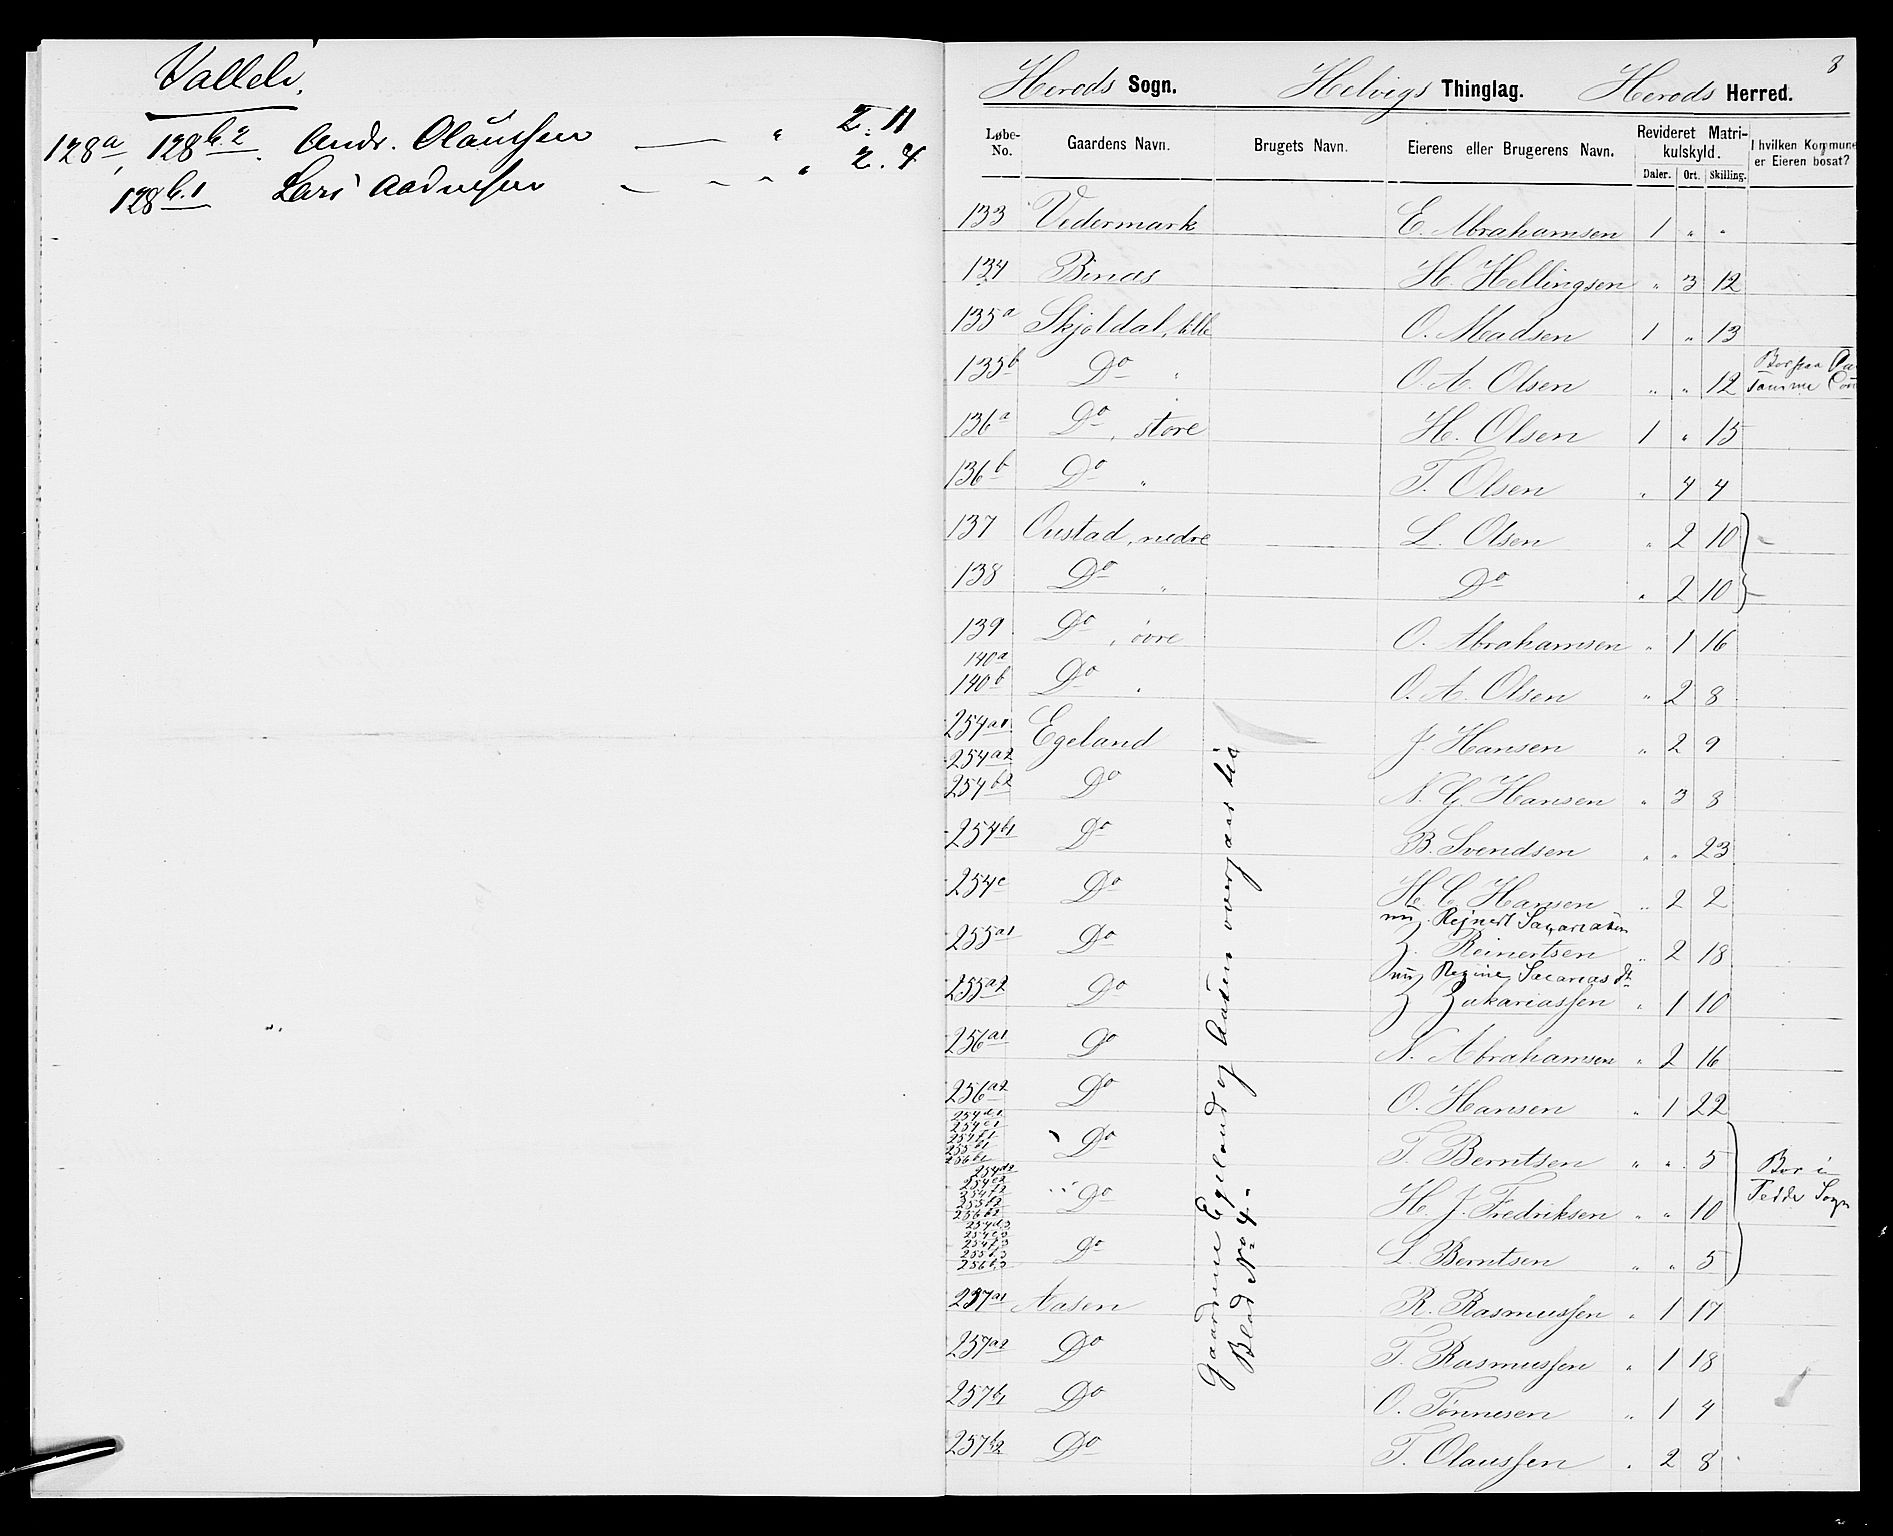 Valleli.
128a, 128b.2. Andr. Olaussen — " 2. 11
128b.1 Lars Aadnesen — " 2. 4
8
Herods Sogn. Helvigs Thinglag. Herods Herred.
Løbe-No. Gaardens Navn. Brugets Navn. Eierens eller Brugerens Navn. Revideret Matrikulskyld. I hvilken Kommune er Eieren bosat?
Daler. Ort. Skilling.
133 Vedermark E. Abrahamsen 1 " "
134 Binas H. Hellingsen " 3 12
135a Skjoldal, lille O. Madsen 1 " 13
135b Do " O. A. Olsen " " 12 Bor paa samme
136a Do, store H. Olsen 1 " 15
136b Do " T. Olsen " 4 4
137 Oustad, nedre L. Olsen " 2 10
138 Do " Do " 2 10
139 Do, øvre O. Abrahamsen " 1 16
140a
140b Do " O. A. Olsen " 2 8
254a1
254a2 Egeland J Hansen " 2 9
254b2 Do N. G. Hansen " 3 3
254b1 Do B. Svendsen " " 23
254c Do H. C. Hansen " 2 2
nu Rejnert Sacariasen
255a1 Do Z. Reinertsen " 2 18
nu Regine Sacarias dt
255a2 Do Z Zakariassen " 1 10
256a1 Do N. Abrahamsen " 2 16
256a2 Do O. Hansen " 1 22
254d1
254e1
254f1
255b1
256b1 Do T. Berntsen " " 5
254d2
254e2
254f2
255b2
256b2 Do H. J. Fredriksen " " 10 Bor i Fedde Sogn
254d3
254e3
254f3
255b3
256b3 Do L. Berntsen " " 5
257a1 Aasen R. Rasmussen " 1 17
257a2 Do T. Rasmussen " 1 18
257b1 Do O. Tønnesen " 1 4
257b2 Do T. Olaussen " 2 8
Gaardene Egeland og Aasen overgaar til
Blad No 4.